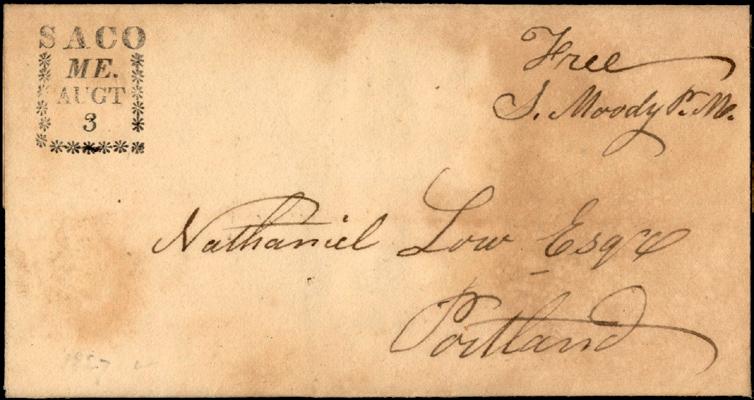 SACO
ME.
AUGT
3
Free
S. Moody P. M.
Nathaniel Low Esqr
Portland